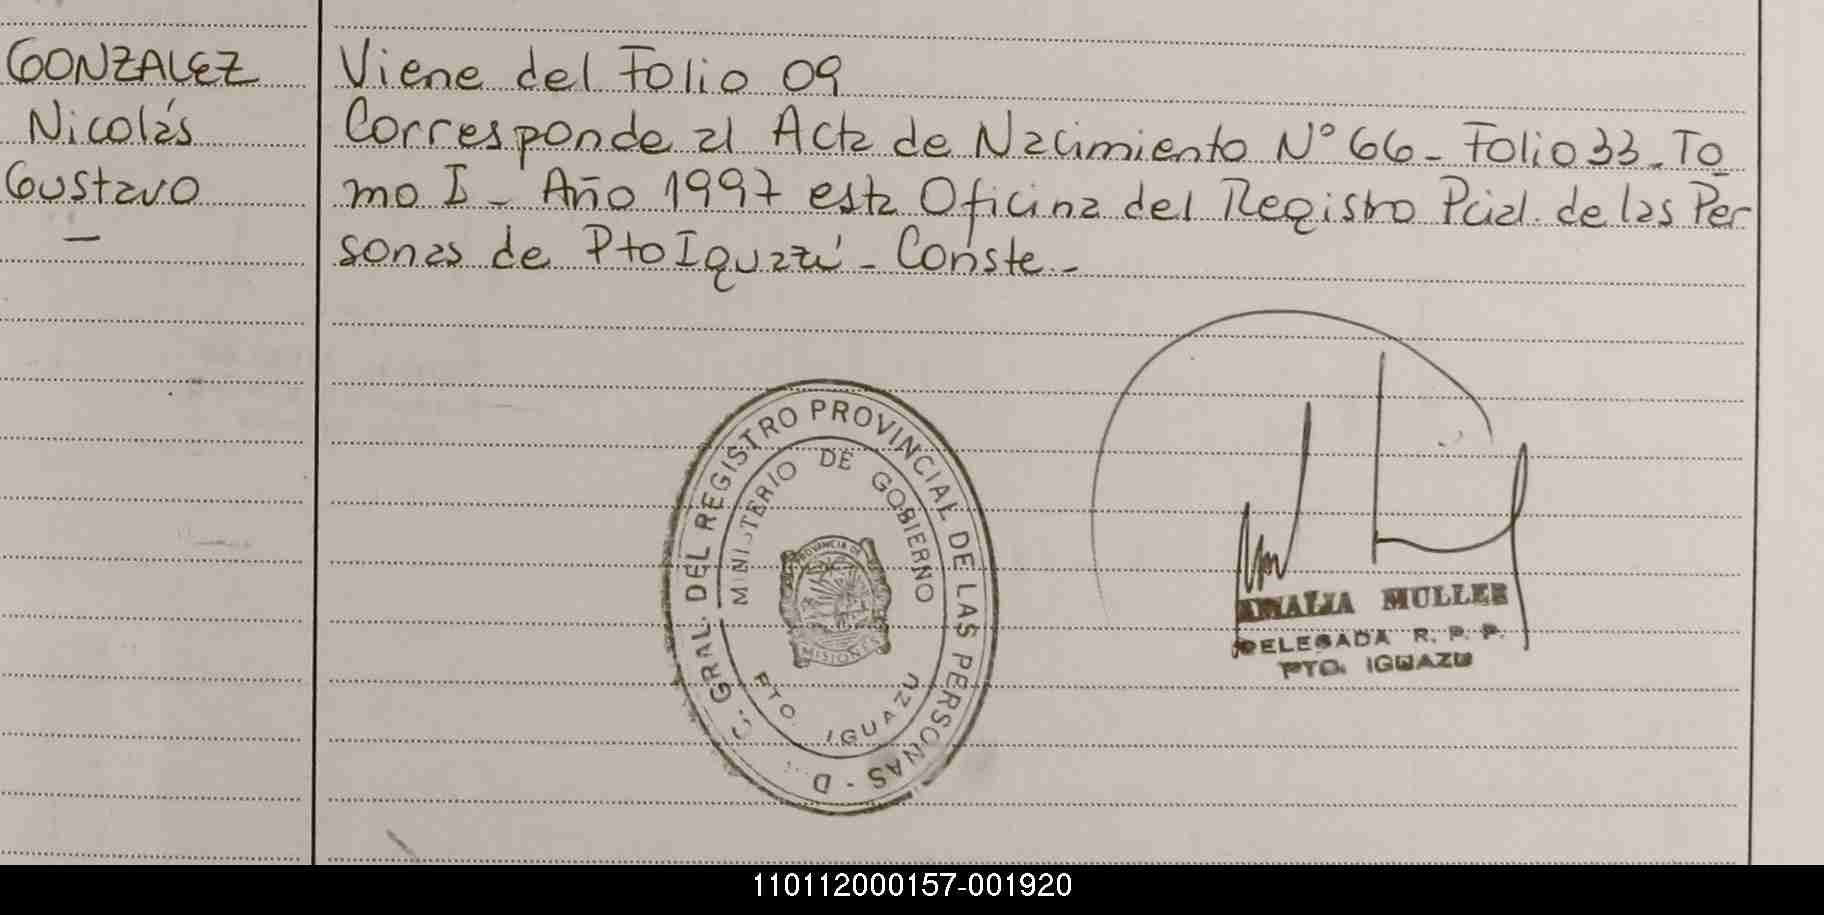 GONZALEZ
Nicolás
Gustavo
—
Viene del Folio 09
Corresponde al Acta de Nacimiento N° 66 - Folio 33 - To
mo I - Año 1997 esta Oficina del Registro Pcial. de las Per
sonas de Pto Iguazú - Conste -
C. GRAL. DEL REGISTRO PROVINCIAL DE LAS PERSONAS - D
MINISTERIO DE GOBIERNO
PROVINCIA DE
MISIONES
PTO. IGUAZU
AMALIA MULLER
DELEGADA R. P. P.
PTO. IGUAZU
110112000157-001920